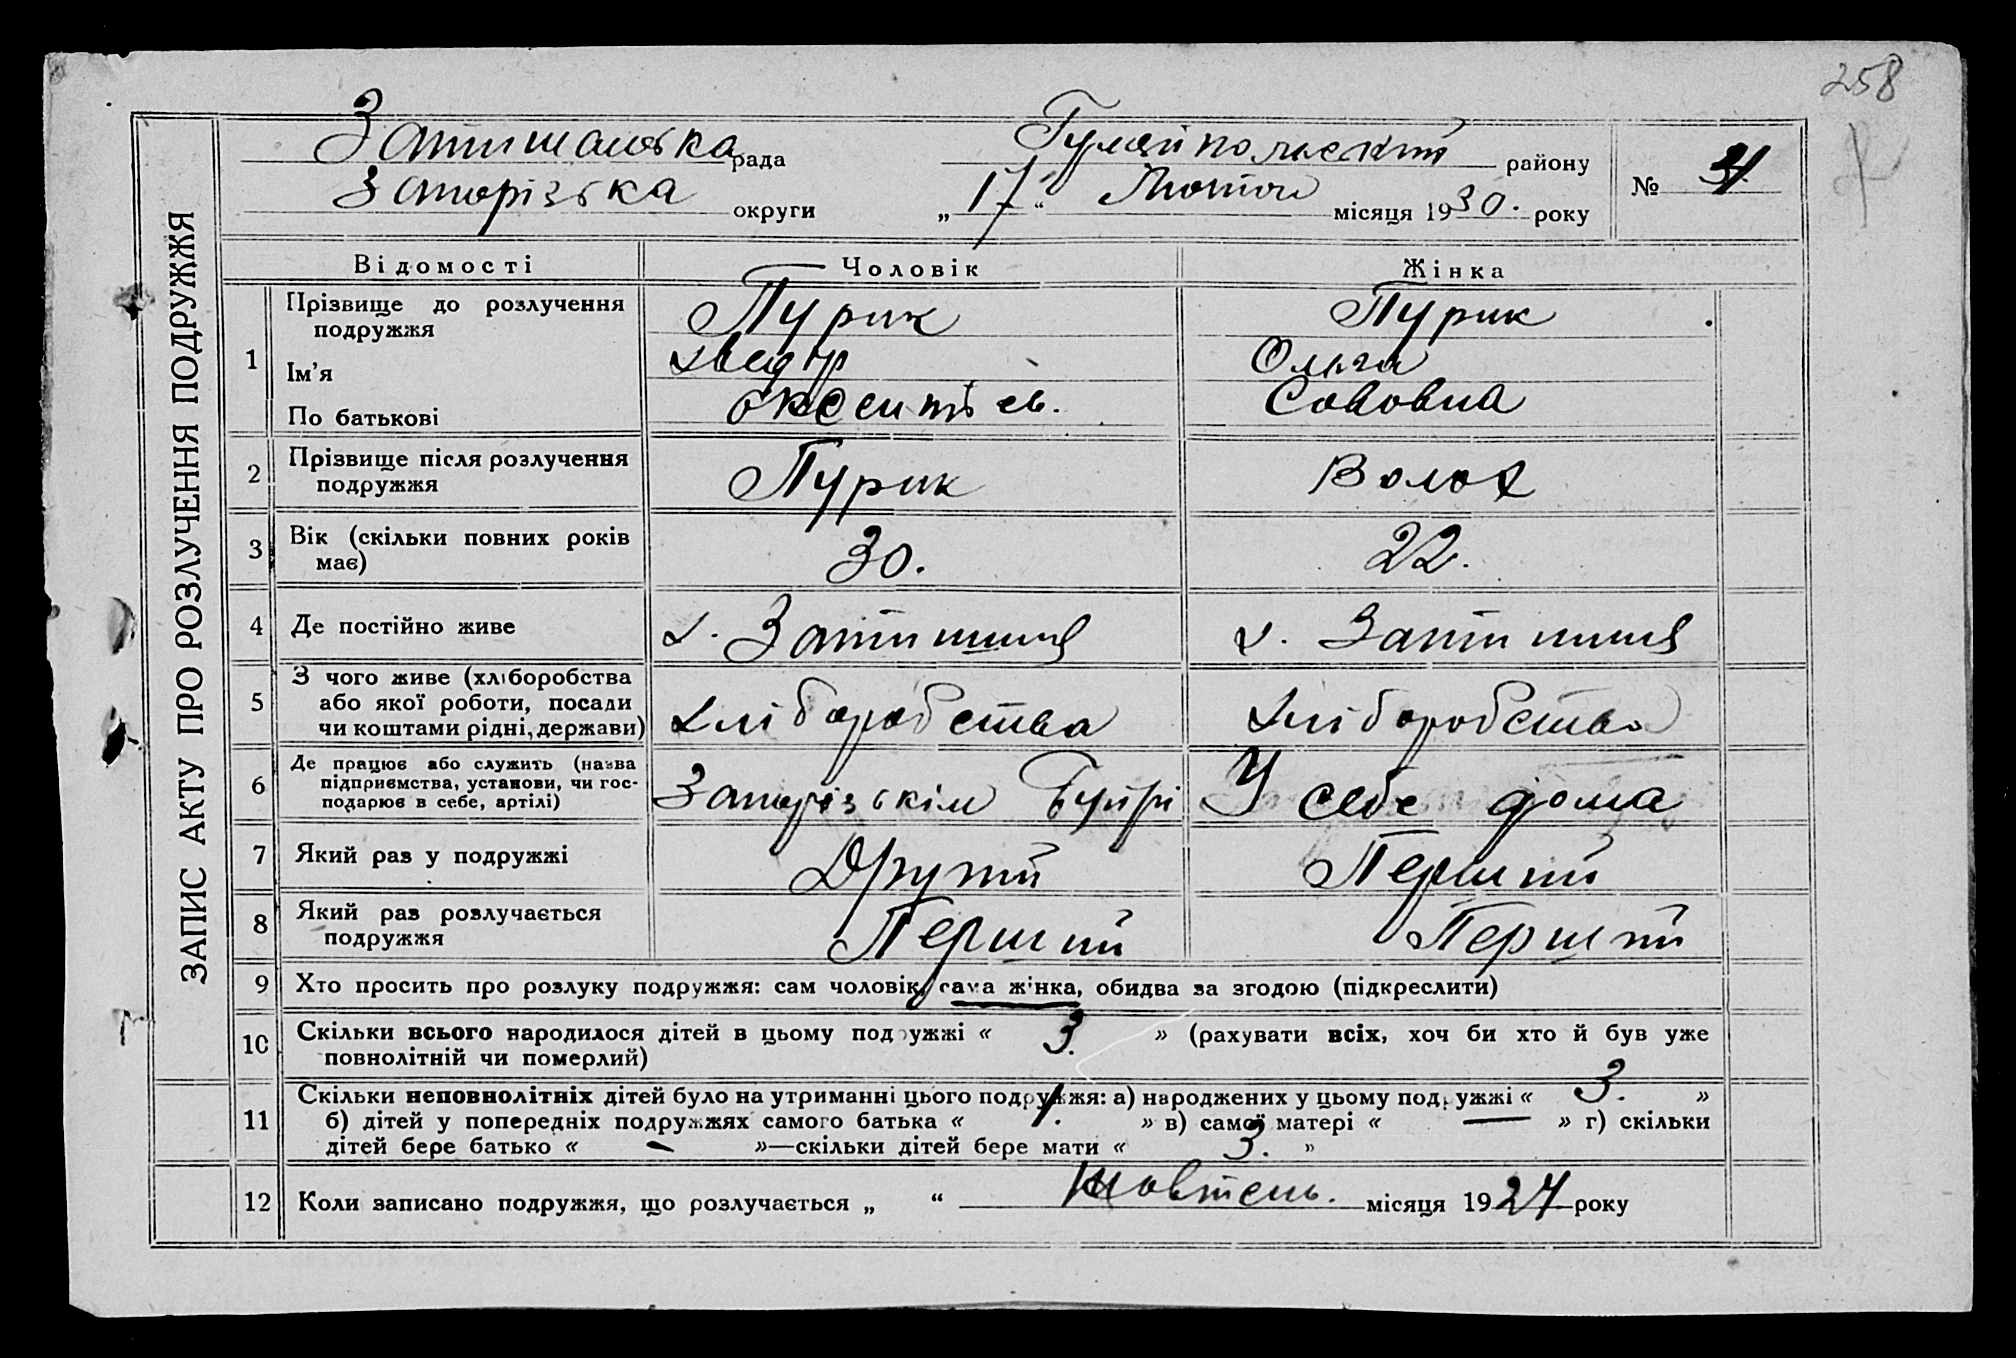 258
Затишанська рада Гуляйпольский району
№
Запорізька округи „ 17 “ Лютого місяця 1930. року
ЗАПИС АКТУ ПРО РОЗЛУЧЕННЯ ПОДРУЖЖЯ
Відомості Чоловік Жінка
1 Прізвище до розлучення подружжя Пурик Пурик
Ім’я Хведір Ольга
По батькові Оксентієв. Савовна
2 Прізвище після розлучення подружжя Пурик Волох
3 Вік (скільки повних років має) 30. 22.
4 Де постійно живе х. Затишшя х. Затишшя
5 З чого живе (хліборобства або якої роботи, посади чи коштами рідні, держави) хліборобства хліборобства
6 Де працює або служить (назва підприємства, установи, чи господарює в себе, артілі) Запорізькім У себе дома
7 Який раз у подружжі Другий Перший
8 Який раз розлучається подружжя Перший Перший
9 Хто просить про розлуку подружжя: сам чоловік, сама жінка, обидва за згодою (підкреслити)
10 Скільки всього народилося дітей в цьому подружжі « 3. » (рахувати всіх, хоч би хто й був уже
повнолітній чи померлий)
11 Скільки неповнолітніх дітей було на утриманні цього подружжя: а) народжених у цьому подружжі « 3. »
б) дітей у попередніх подружжях самого батька « 1. » в) самої матері « — » г) скільки
дітей бере батько « — »—скільки дітей бере мати « 3. »
12 Коли записано подружжя, що розлучається „ “ Жовтень. місяця 1927 року